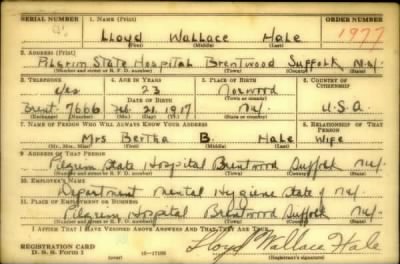 SERIAL NUMBER 1. NAME (Print) ORDER NUMBER
Lloyd Wallace Hale 1977
(First) (Middle) (Last)
2. ADDRESS (Print)
Pilgrim State Hospital Brentwood Suffolk N.Y.
(Number and street or R. F. D. number) (Town) (County) (State)
3. TELEPHONE 4. AGE IN YEARS 5. PLACE OF BIRTH 6. COUNTRY OF CITIZENSHIP
Yes 23 Norwood
DATE OF BIRTH (Town or county)
Brent. 7666 21, 1917 N.Y. U.S.A
(Exchange) (Number) (Mo.) (Day) (Yr.) (State or country)
7. NAME OF PERSON WHO WILL ALWAYS KNOW YOUR ADDRESS 8. RELATIONSHIP OF THAT PERSON
Mrs Bertha B. Hale Wife
(Mr., Mrs., Miss) (First) (Middle) (Last)
9. ADDRESS OF THAT PERSON
Pilgrim State Hospital Brentwood Suffolk N.Y.
(Number and street or R. F. D. number) (Town) (County) (State)
10. EMPLOYER'S NAME
Department Mental Hygiene State of N.Y.
11. PLACE OF EMPLOYMENT OR BUSINESS
Pilgrim Hospital Brentwood Suffolk N.Y.
(Number and street or R. F. D. number) (Town) (County) (State)
I AFFIRM THAT I HAVE VERIFIED ABOVE ANSWERS AND THAT THEY ARE TRUE.
REGISTRATION CARD
D. S. S. Form 1 Lloyd Wallace Hale
(over) (Registrant's signature)